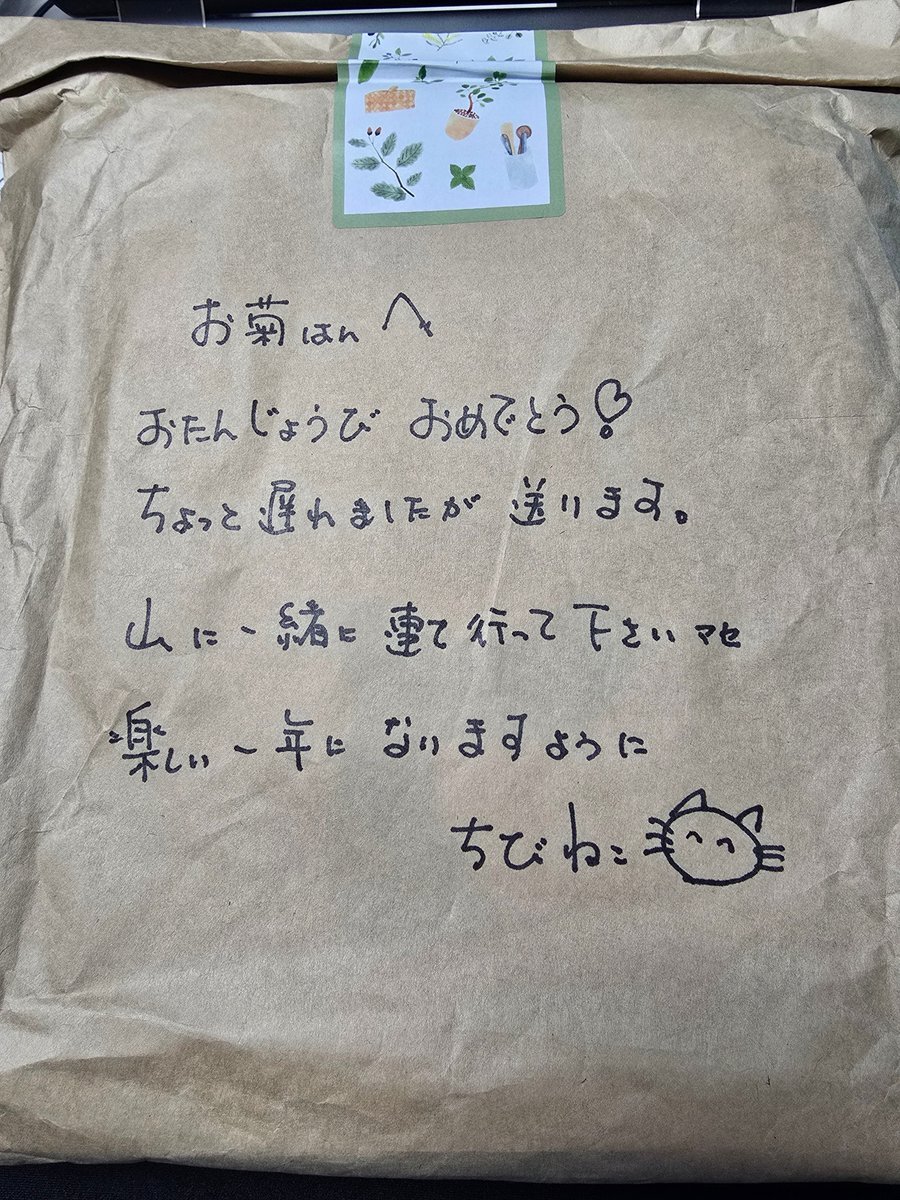 お菊はんへ
おたんじょうび おめでとう!
ちょっと遅れましたが 送ります。
山に一緒に 連て行って下さいマセ
楽しい一年に なりますように
ちびねこ